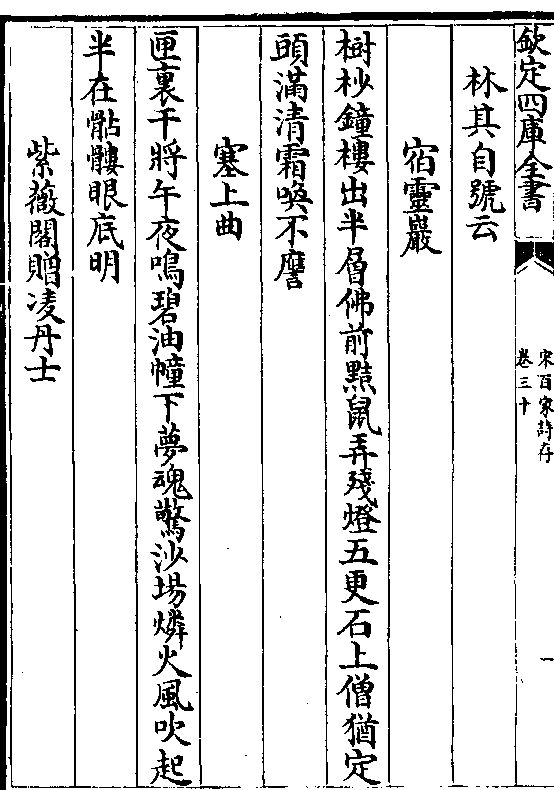 欽定四庫全書
宋百家詩存
卷三十
一
林其自號云
宿靈巖
樹杪鐘樓出半層佛前黠鼠弄殘燈五更石上僧猶定
頭滿清霜喚不譍
塞上曲
匣裏干將午夜鳴碧油幢下夢魂驚沙場燐火風吹起
半在骷髏眼底明
紫薇閣贈凌丹士